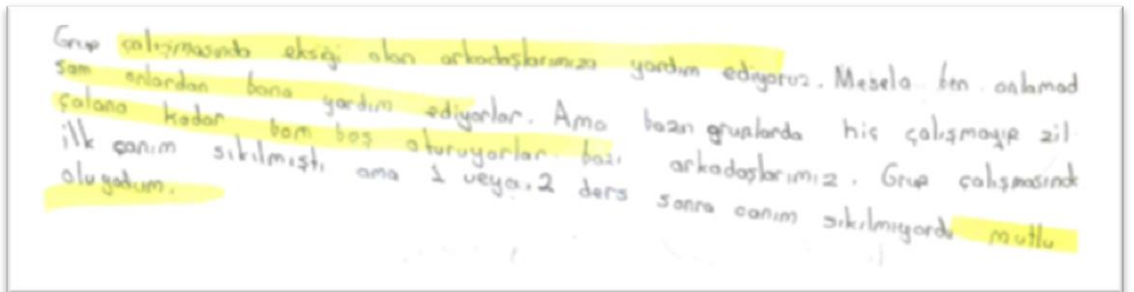 Grup çalışmasında eksiği olan arkadaşlarımıza yardım ediyoruz. Mesela ben anlamad
sam onlardan bana yardım ediyorlar. Ama bazın gruplarda hiç çalışmayıp zil
çalana kadar bom boş oturuyorlar bazı arkadaşlarımız. Grup çalışmasınd
ilk canım sıkılmıştı ama 1 veya 2 ders sonra canım sıkılmıyordu mutlu
oluyodum.